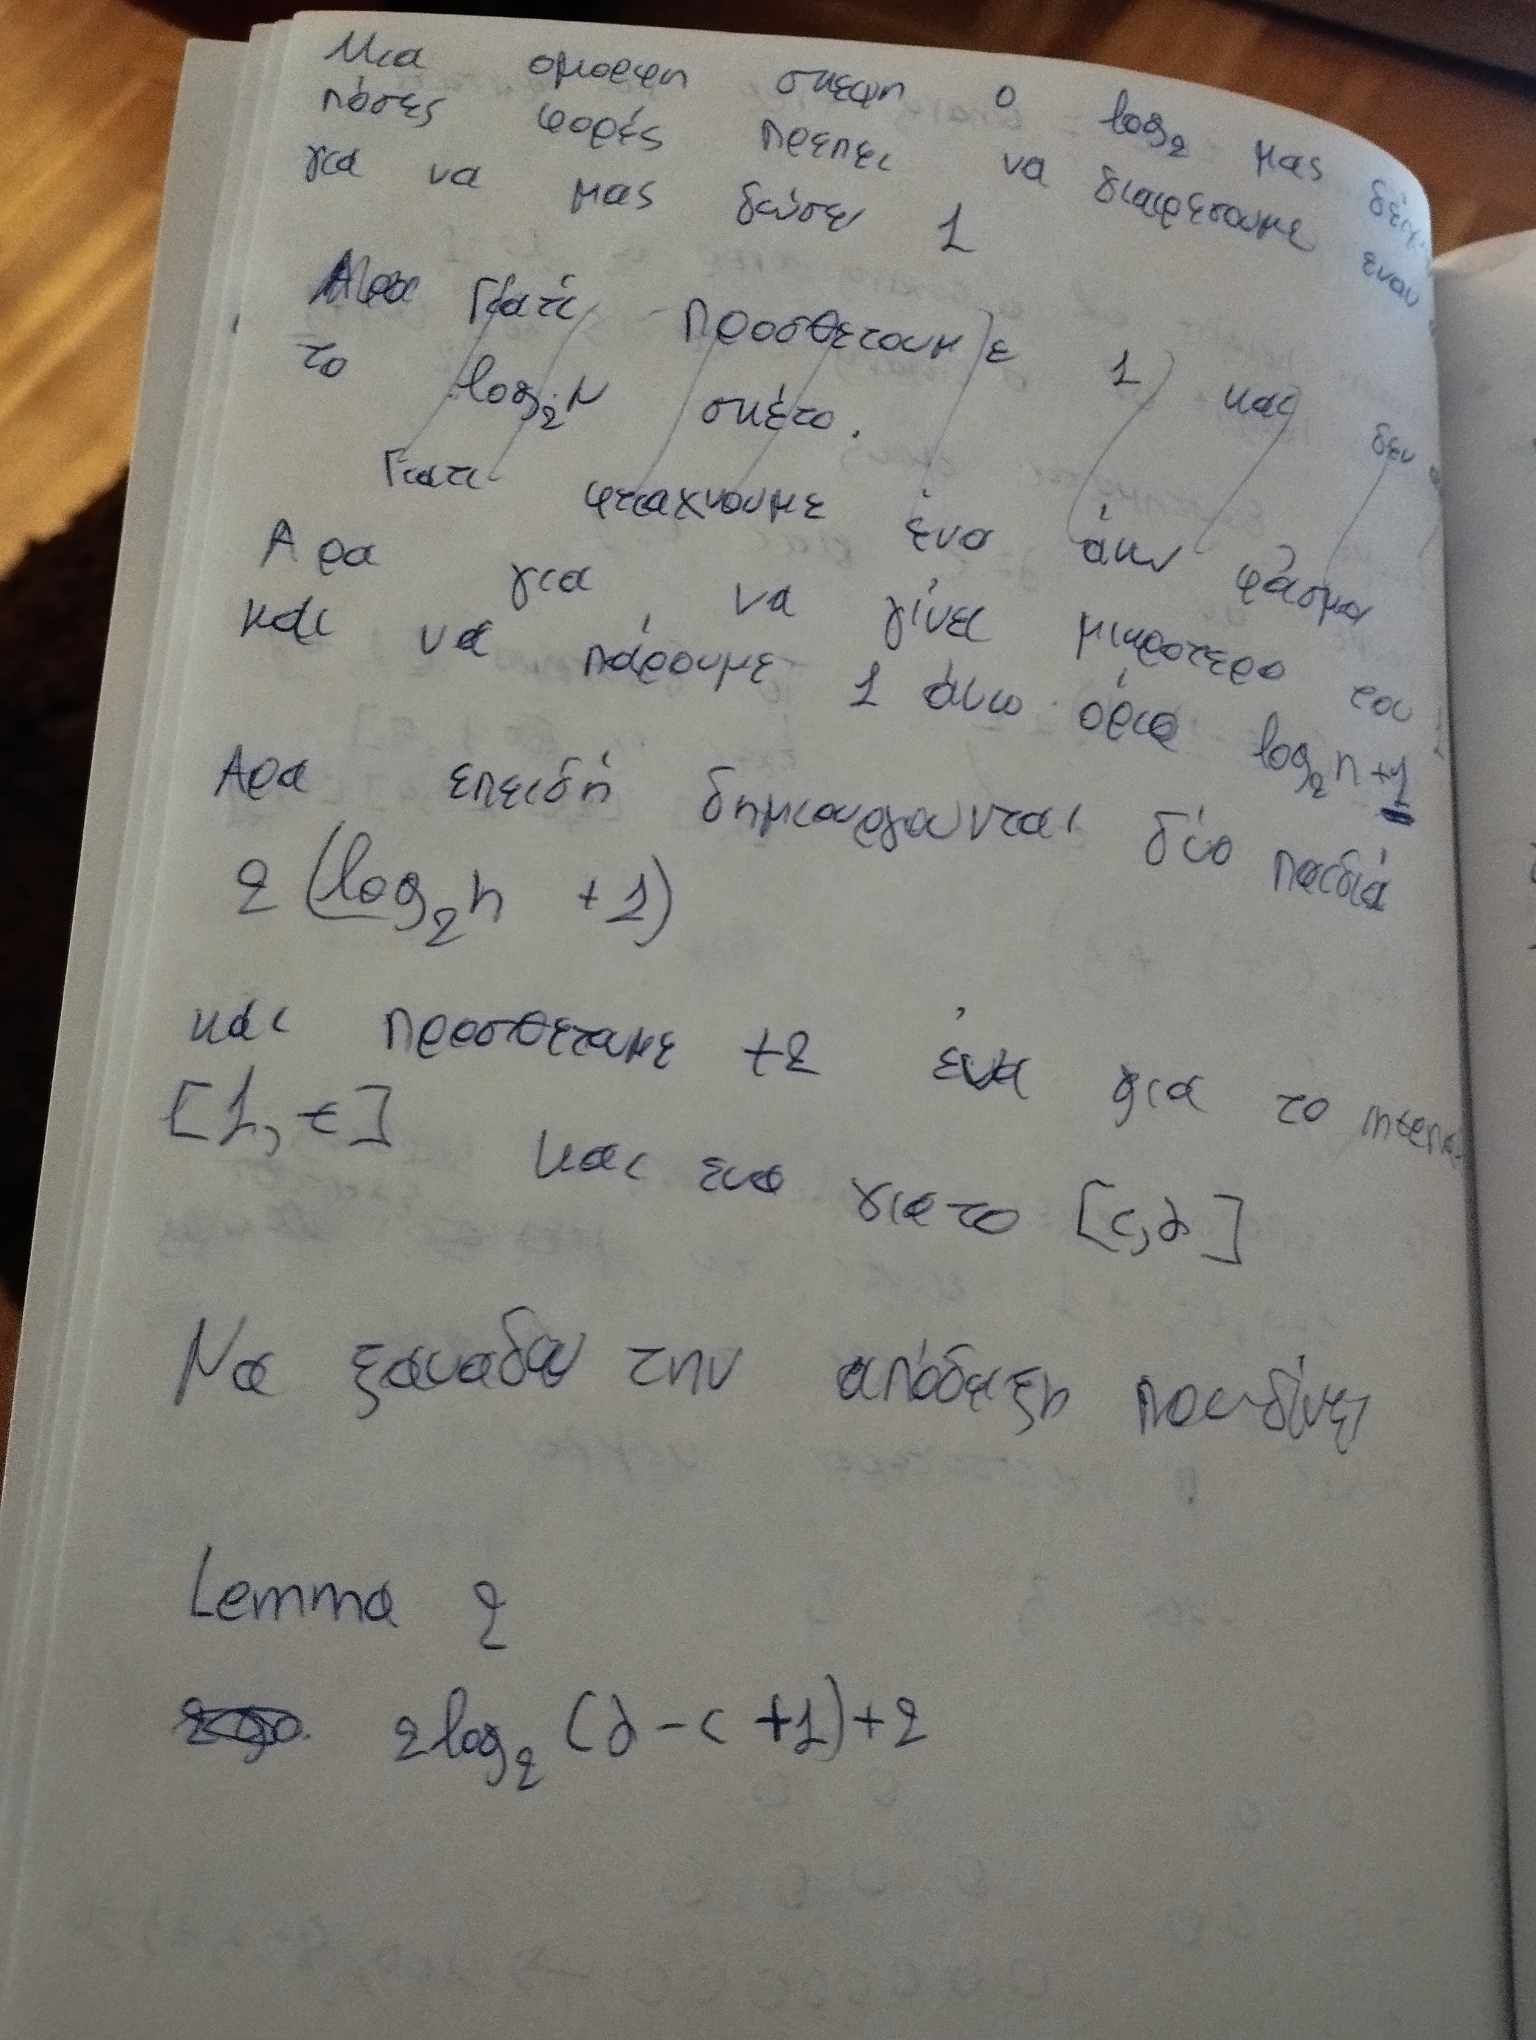 Μια ομορφη σκεψη ο log₂ μας
πόσες φορές πρεπει να διαιρεσουμε εναν
για να μας δώσει 1
Αρα Γιατί προσθετουμε 1 και δεν
το log₂N σκέτο.
Γιατι φτιαχνουμε ένα άνω φάσμα
Αρα για να γίνει μικροτερο του
και να πάρουμε 1 άνω όριο log₂n+1
Αρα επειδή δημιουργουνται δύο παιδιά
2 (log₂n +1)
και προσθεταμε +2 ένα για το
[1, t] και ενα για το [c,d]
Να ξαναδω την απόδειξη που δίνει
Lemma 2
2log₂ (d-c +1)+2